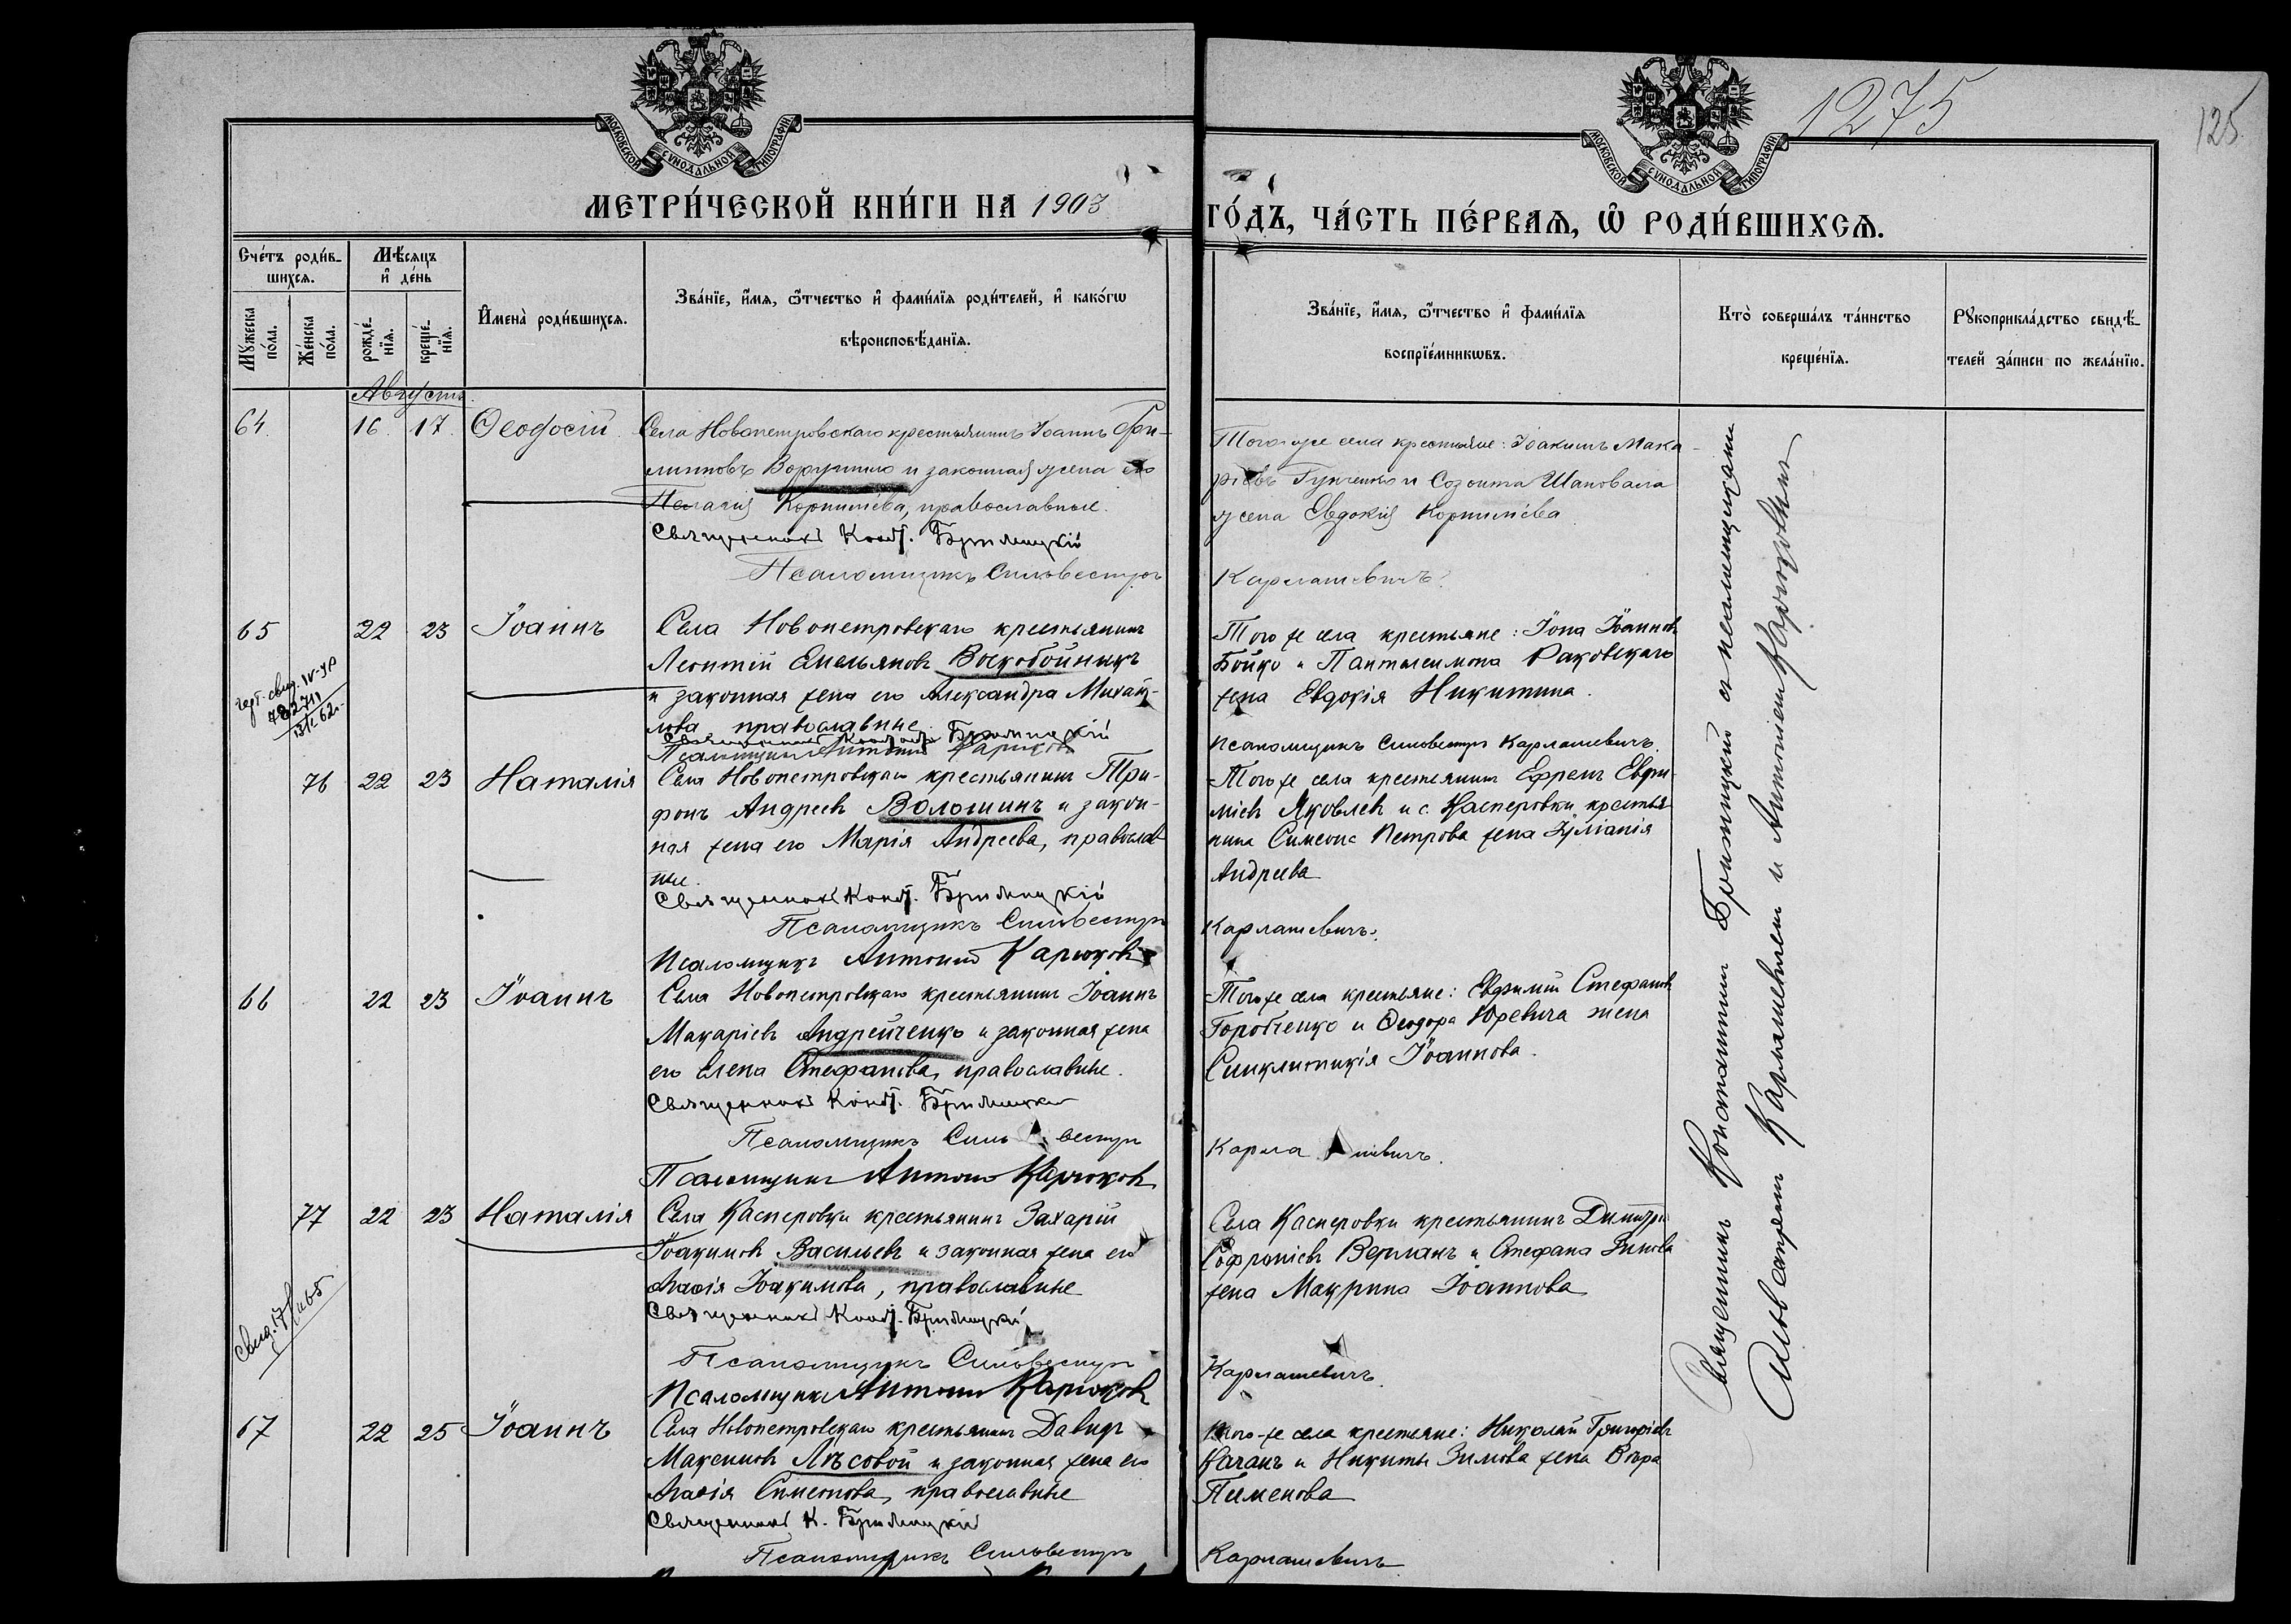 МОСКОВСКОЙ СѴНОДАЛЬНОЙ ТИПОГРАФІИ
МОСКОВСКОЙ СѴНОДАЛЬНОЙ ТИПОГРАФІИ
1275
125
МЕТРИ́ЧЕСКОЙ КНИ́ГИ НА 1903
ГО́ДЪ, ЧА́СТЬ ПЕ́РВАѦ, Ѡ҆ РОДИ́ВШИХСѦ.
Сче́тъ роди́в-
шихсѧ.
Мꙋ́жеска
по́ла.
Же́нска
по́ла.
Мѣ́сѧцъ
и҆ де́нь
рожде́-
нїѧ.
креще́-
нїѧ.
И҆мена̀ роди́вшихсѧ.
Зва́нїе, и҆́мѧ, ѻ҆́тчество и҆ фами́лїѧ роди́телей, и҆ како́гѡ
вѣроисповѣ́данїѧ.
Зва́нїе, и҆́мѧ, ѻ҆́тчество и҆ фами́лїѧ
воспрїе́мникѡвъ.
Кто̀ соверша́лъ та́инство
креще́нїѧ.
Рꙋкоприкла́дство свидѣ́-
телей за́писи по жела́нїю.
Августъ.
64. 16. 17. Ѳеодосій
Села Новопетровскаго крестьянинъ Іоаннъ Фи-
липповъ и законная жена его
Пелагія Корниліева, православные.
Священникъ Конст. Бритицкій
Псаломщикъ Сильвестръ
Того-же села крестьяне: Іоакимъ Мака-
ріевъ и Созонта Шаповала
жена Евдокія Корниліева
Карлашевичъ.
65 22 23 Іоаннъ
Села Новопетровскаго крестьянинъ
Леонтій Емельяновъ Воскобойникъ
и законная жена его Александра Михай-
лова, православные
Священникъ Бритицкій
Псаломщикъ Антоній Карюковъ
Того же села крестьяне: Іона Іоанновъ
Бойко и Пантелеимона Раковскаго
жена Евдокія Никитина.
Псаломщикъ Сильвестръ Карлашевичъ.
76 22 23 Наталія
Села Новопетровскаго крестьянинъ Три-
фонъ Андреевъ Волошинъ и закон-
ная жена его Марія Андреева, православ-
ные.
Священникъ Конст. Бритицкій
Псаломщикъ Сильвестръ
Псаломщикъ Антоній Карюковъ
Того же села крестьянинъ Ефремъ Евфи-
міевъ Яковлевъ и с. Касперовки крестья-
нина Симеона Петрова жена Іуліанія
Андреева
Карлашевичъ.
66 22 23 Іоаннъ
Села Новопетровскаго крестьянинъ Іоаннъ
Макаріевъ Андрейченко и законная жена
его Елена Стефанова, православные.
Священникъ Конст. Бритицкій
Псаломщикъ Сильвестръ
Псаломщикъ Антоній Карюковъ
Того же села крестьяне: Евфимій Стефановъ
Горобченко и Ѳеодора Юревича жена
Синклитикія Іоаннова.
Карлашевичъ.
77 22 23 Наталія
Села Касперовки крестьянинъ Захарій
Іоакимовъ Васильевъ и законная жена его
Агаѳія Іоакимова, православные
Священникъ Конст. Бритицкій
Псаломщикъ Сильвестръ
Псаломщикъ Антоній Карюковъ
Села Касперовки крестьянинъ Димитрій
Софроніевъ Верланъ и Стефана
жена Маврина Іоаннова
Карлашевичъ.
67 22 25 Іоаннъ
Села Новопетровскаго крестьянинъ Давидъ
Максимовъ Лѣсовой и законная жена его
Агаѳія Симеонова, православные
Священникъ К. Бритицкій
Псаломщикъ Сильвестръ
Того-же села крестьяне: Николай Григоріевъ
Качанъ и Никиты Зимова жена Вѣра
Пименова
Карлашевичъ
Священникъ Константинъ Бритицкій съ псаломщиками
Сильвестромъ Карлашевичемъ и Антоніемъ Карюковымъ